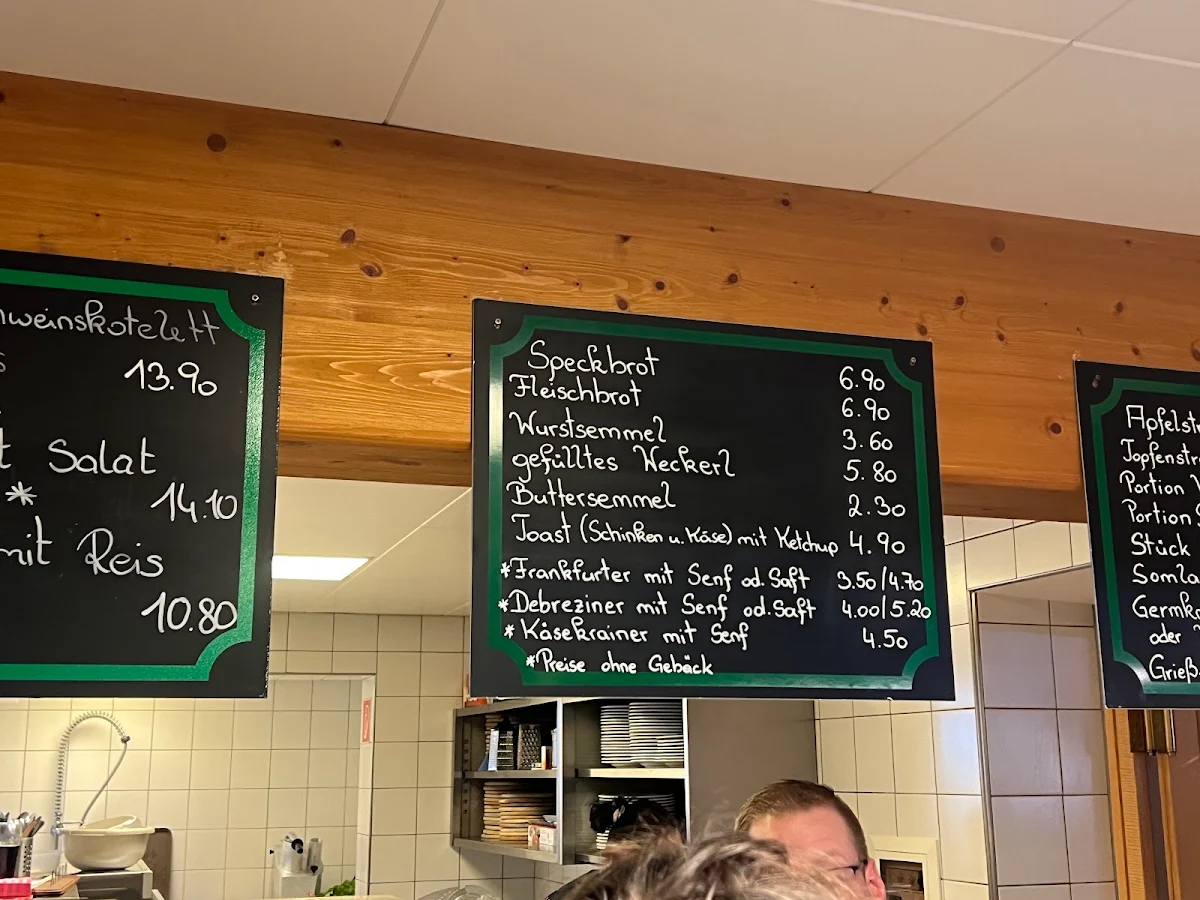 Salat
13.90
*
14.10
mit Reis
10.80
Speckbrot 6.90
Fleischbrot 6.90
Wurstsemmel 3.60
gefülltes Weckerl 5.80
Buttersemmel 2.30
Toast (Schinken u. Käse) mit Ketchup 4.90
*Frankfurter mit Senf od. Saft 3.50/4.70
*Debreziner mit Senf od. Saft 4.00/5.20
*Käsekrainer mit Senf 4.50
*Preise ohne Gebäck
Portion
Portion
Stück
oder